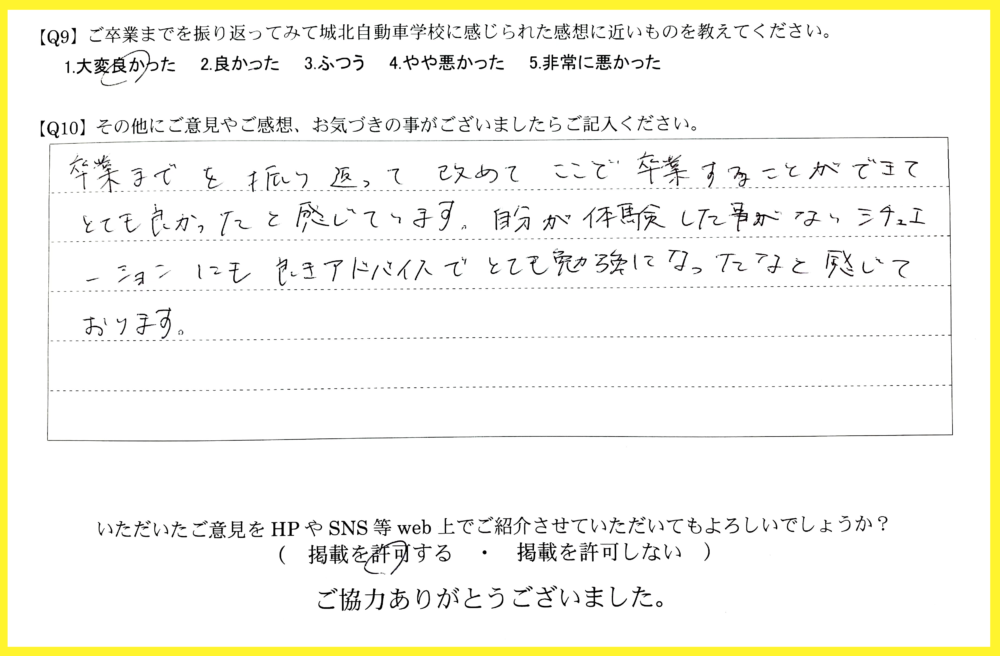 【Q9】ご卒業までを振り返ってみて城北自動車学校に感じられた感想に近いものを教えてください。
1.大変良かった 2.良かった 3.ふつう 4.やや悪かった 5.非常に悪かった
【Q10】その他にご意見やご感想、お気づきの事がございましたらご記入ください。
卒業までを振り返って改めてここで卒業することができて
とても良かったと感じています。自分が体験した事がないシチュエ
ーションにも良きアドバイスでとても勉強になったなと感じて
おります。
いただいたご意見をHPやSNS等web上でご紹介させていただいてもよろしいでしょうか？
（ 掲載を許可する ・ 掲載を許可しない ）
ご協力ありがとうございました。